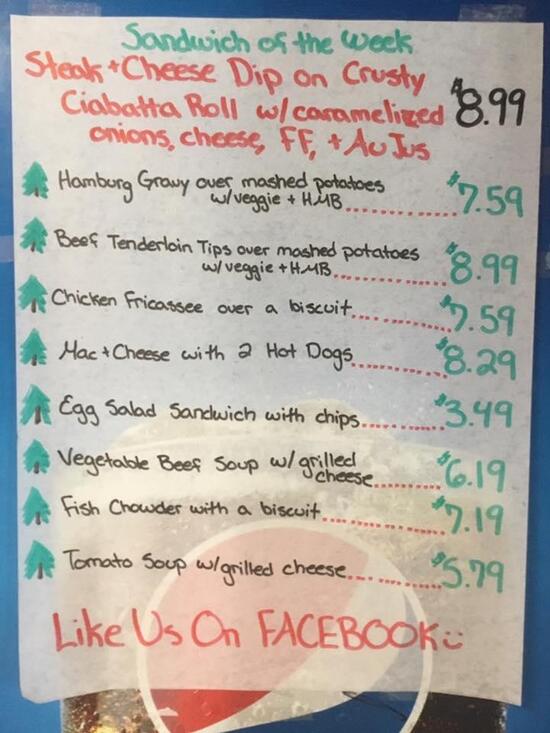 Sandwich of the Week
Steak + Cheese Dip on Crusty
Ciabatta Roll w/caramelized $8.99
onions, cheese, FF, + Au Jus
Hamburg Gravy over mashed potatoes
w/veggie + HMB......... $7.59
Beef Tenderloin Tips over mashed potatoes
w/veggie + HMB............ $8.99
Chicken Fricassee over a biscuit............ $7.59
Mac + Cheese with 2 Hot Dogs............ $8.29
Egg Salad Sandwich with chips......... $3.49
Vegetable Beef Soup w/grilled
cheese......... $6.19
Fish Chowder with a biscuit............ $7.19
Tomato Soup w/grilled cheese............ $5.79
Like Us On FACEBOOK